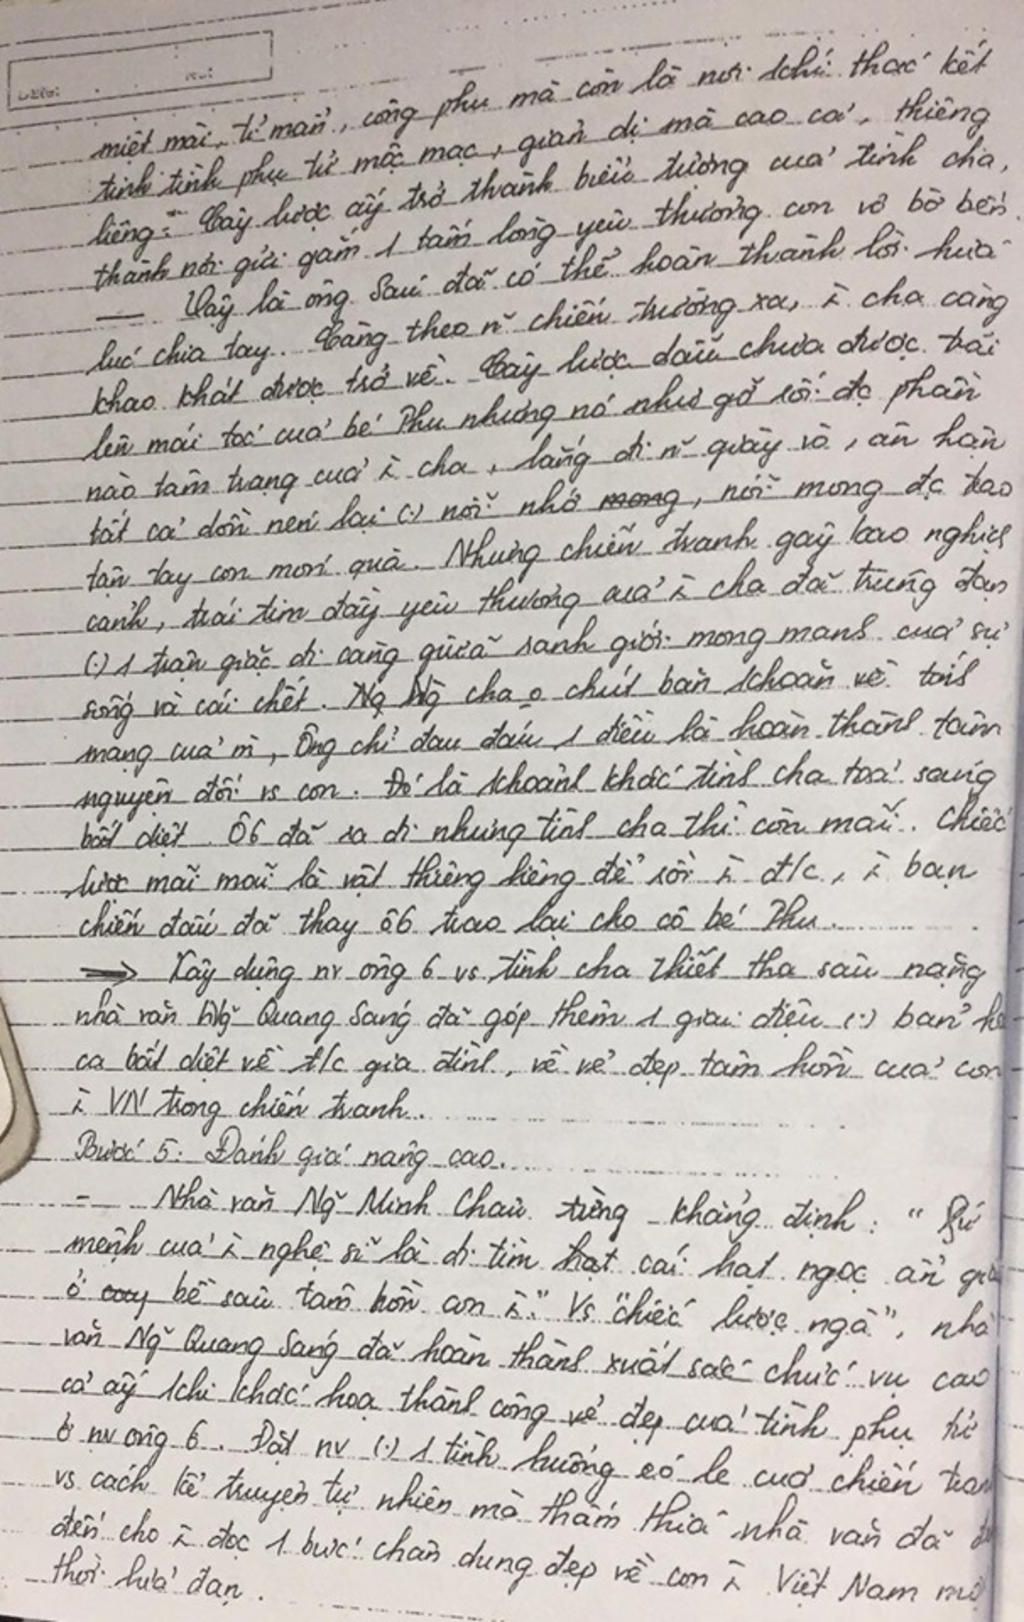 miệt mài, tỉ mẩn, công phu mà còn là nơi khúc thác kết
tinh tình phụ tử mộc mạc, giản dị mà cao cả, thiêng
liêng. Cây lược ấy trở thành biểu tượng của tình cha,
thành nơi gửi gắm 1 tấm lòng yêu thương con vô bờ bến.
— Vậy là ông Sáu đã có thể hoàn thành lời hứa
lúc chia tay. Càng theo n~ chiến trường xa, ì cha càng
khao khát được trở về. Cây lược dẫu chưa được trải
lên mái tóc của bé Thu nhưng nó như gỡ rối đc phần
nào tâm trạng của ì cha, lắng đi n~ quầy vò, ân hận
tất cả dồn nén lại (.) nỗi nhớ mong, nỗi mong đc trao
tận tay con món quà. Nhưng chiến tranh gây bao nghịch
cảnh, trái tim đầy yêu thương của ì cha đã trúng đạn
(.) 1 trận giặc đi càng giữa ranh giới mong manh của sự
sống và cái chết. Ng Ng cha o chút băn khoăn về tính
mạng của m, ông chỉ đau đáu 1 điều là hoàn thành tâm
nguyện đối vs con. Đó là khoảnh khắc tình cha toả sáng
bất diệt. Ô6 đã ra đi nhưng tình cha thì còn mãi. Chiếc
lược mãi mãi là vật thiêng liêng để rồi ì đ/c, ì bạn
chiến đấu đã thay ô6 trao lại cho cô bé Thu.
=> Xây dựng nv ông 6 vs tình cha thiết tha sâu nặng
nhà văn Ng~ Quang Sáng đã góp thêm 1 giai điệu (.) bản
ca bất diệt về t/c gia đình, về vẻ đẹp tâm hồn của con
ì VN trong chiến tranh.
Bước 5: Đánh giá nâng cao.
- Nhà văn Ng~ Minh Châu từng khẳng định: "Sứ
mệnh của ì nghệ sĩ là đi tìm hạt cái hạt ngọc ẩn
ở bề sâu tâm hồn con ì." Vs "chiếc lược ngà", nhà
văn Ng~ Quang Sáng đã hoàn thành xuất sắc chức vụ cao
cả ấy khi khắc hoạ thành công vẻ đẹp của tình phụ tử
ở nv ông 6. Đặt nv (.) 1 tình huống éo le của chiến
vs cách kể truyện tự nhiên mà thấm thía nhà văn đã
đến cho ì đọc 1 bức chân dung đẹp về con ì Việt Nam
thời lửa đạn.